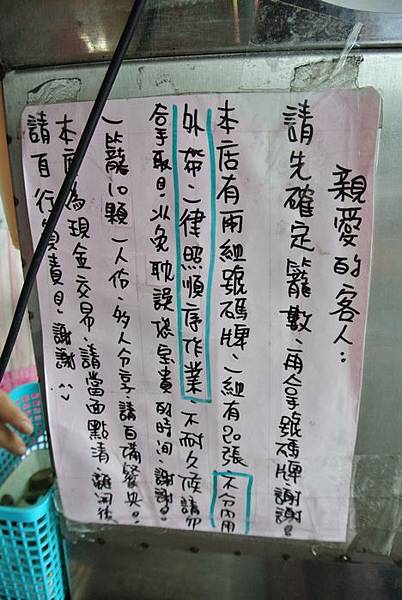 親愛的客人：
請先確定籠數，再拿號碼牌，謝謝！
本店有兩組號碼牌，一組有80張，不分內用
外帶，一律照順序作業，不耐久候請勿
拿取！以免耽誤您寶貴的時間，謝謝！
一籠10顆，一人份，多人分享，請自備餐具！
本店為現金交易，請當面點清，離開後
請自行負責！謝謝^^